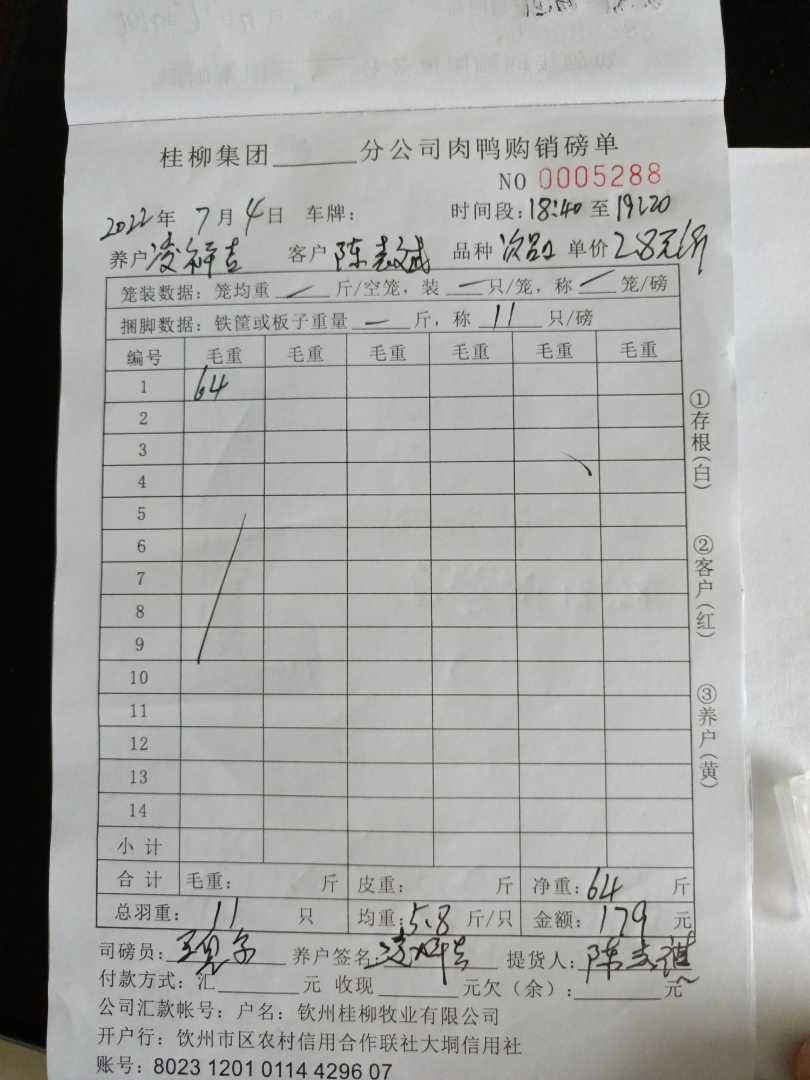 桂柳集团______分公司肉鸭购销磅单
NO 0005288
2022年 7月4日 车牌: 时间段:18:40至19:20
养户凌祥吉 客户 陈志斌 品种 次品 单价2.8元/斤
笼装数据:笼均重 — 斤/空笼,装 — 只/笼,称 — 笼/磅
捆脚数据:铁筐或板子重量 — 斤,称 11 只/磅
编号 毛重 毛重 毛重 毛重 毛重 毛重
1 64
2
3
4
5
6
7
8
9
10
11
12
13
14
小计
合计 毛重: 斤 皮重: 斤 净重:64 斤
总羽重: 11 只 均重:5.8 斤/只 金额:179 元
司磅员: 养户签名: 提货人:陈志
付款方式:汇______元 收现______元欠(余):______元
公司汇款帐号:户名:钦州桂柳牧业有限公司
开户行:钦州市区农村信用合作联社大垌信用社
账号:8023 1201 0114 4296 07
①存根(白)
②客户(红)
③养户(黄)